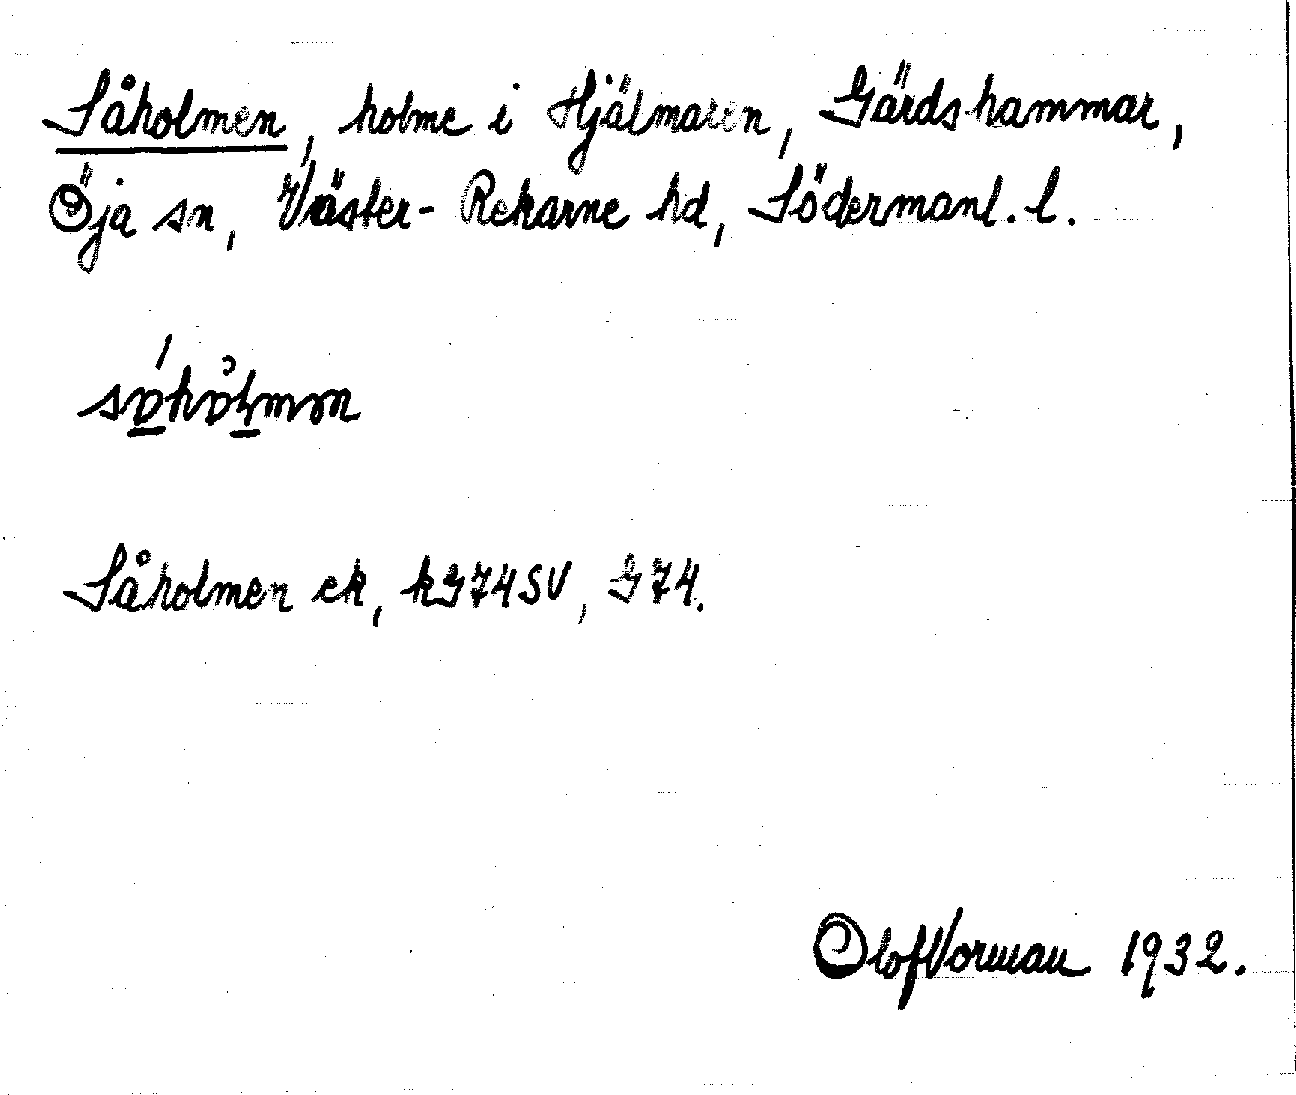 Såholmen, holme i Hjälmaren, Gärdshammar,
Öja sn, Väster-Rekarne hd, Södermanl. l.
Såholmen ek, kG74SV, G74.
Olof Vorman 1932.